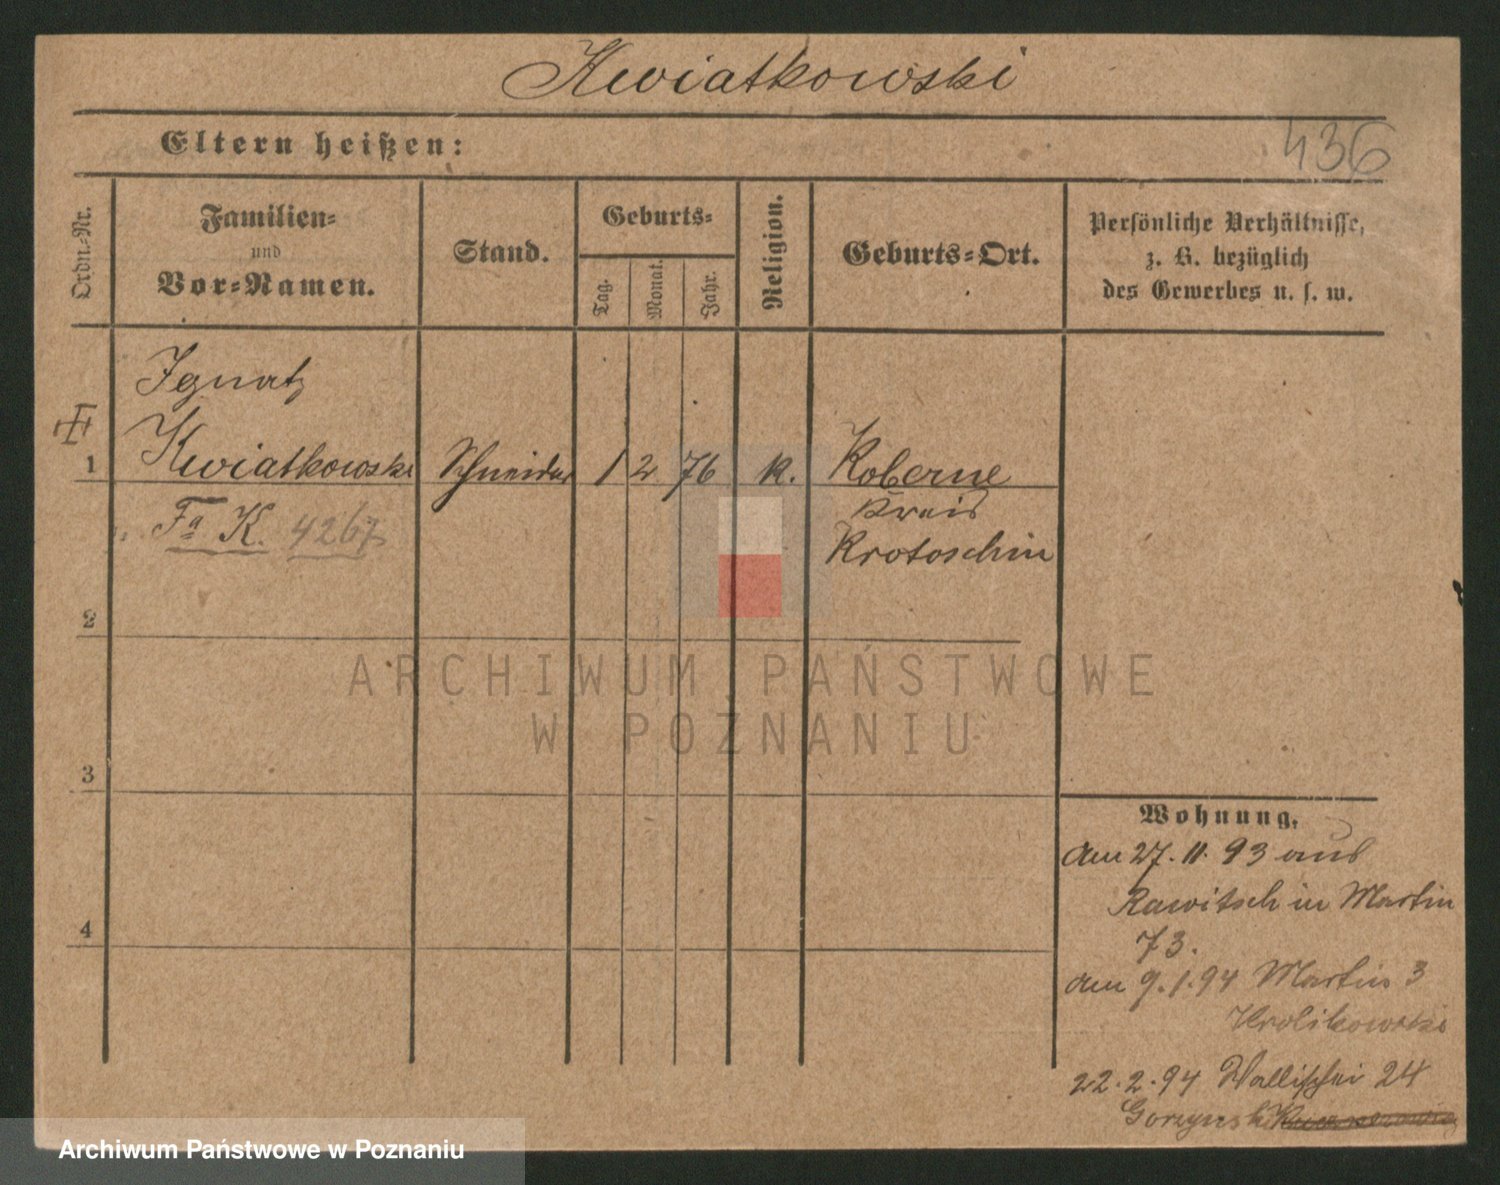 Kwiatkowski
Eltern heißen:
436
Ordn.-Nr.
Familien-
und
Vor-Namen.
Stand.
Geburts-
Tag.
Monat.
Jahr.
Religion.
Geburts-Ort.
Persönliche Verhältnisse,
z. B. bezüglich
des Gewerbes u. s. w.
Ignatz
1 Kwiatkowski Schneider 1 2 76 K. Koberne
Kreis
Fa K. 4267 Krotoschin
2
3
4
Wohnung.
Am 27. 11. 93 aus
Rawitsch in Martin
73.
am 9. 1. 94 Martin 3
Krolikowski
22. 2. 94 Wallischei 24
Gorzynski
ARCHIWUM PAŃSTWOWE
W POZNANIU
Archiwum Państwowe w Poznaniu